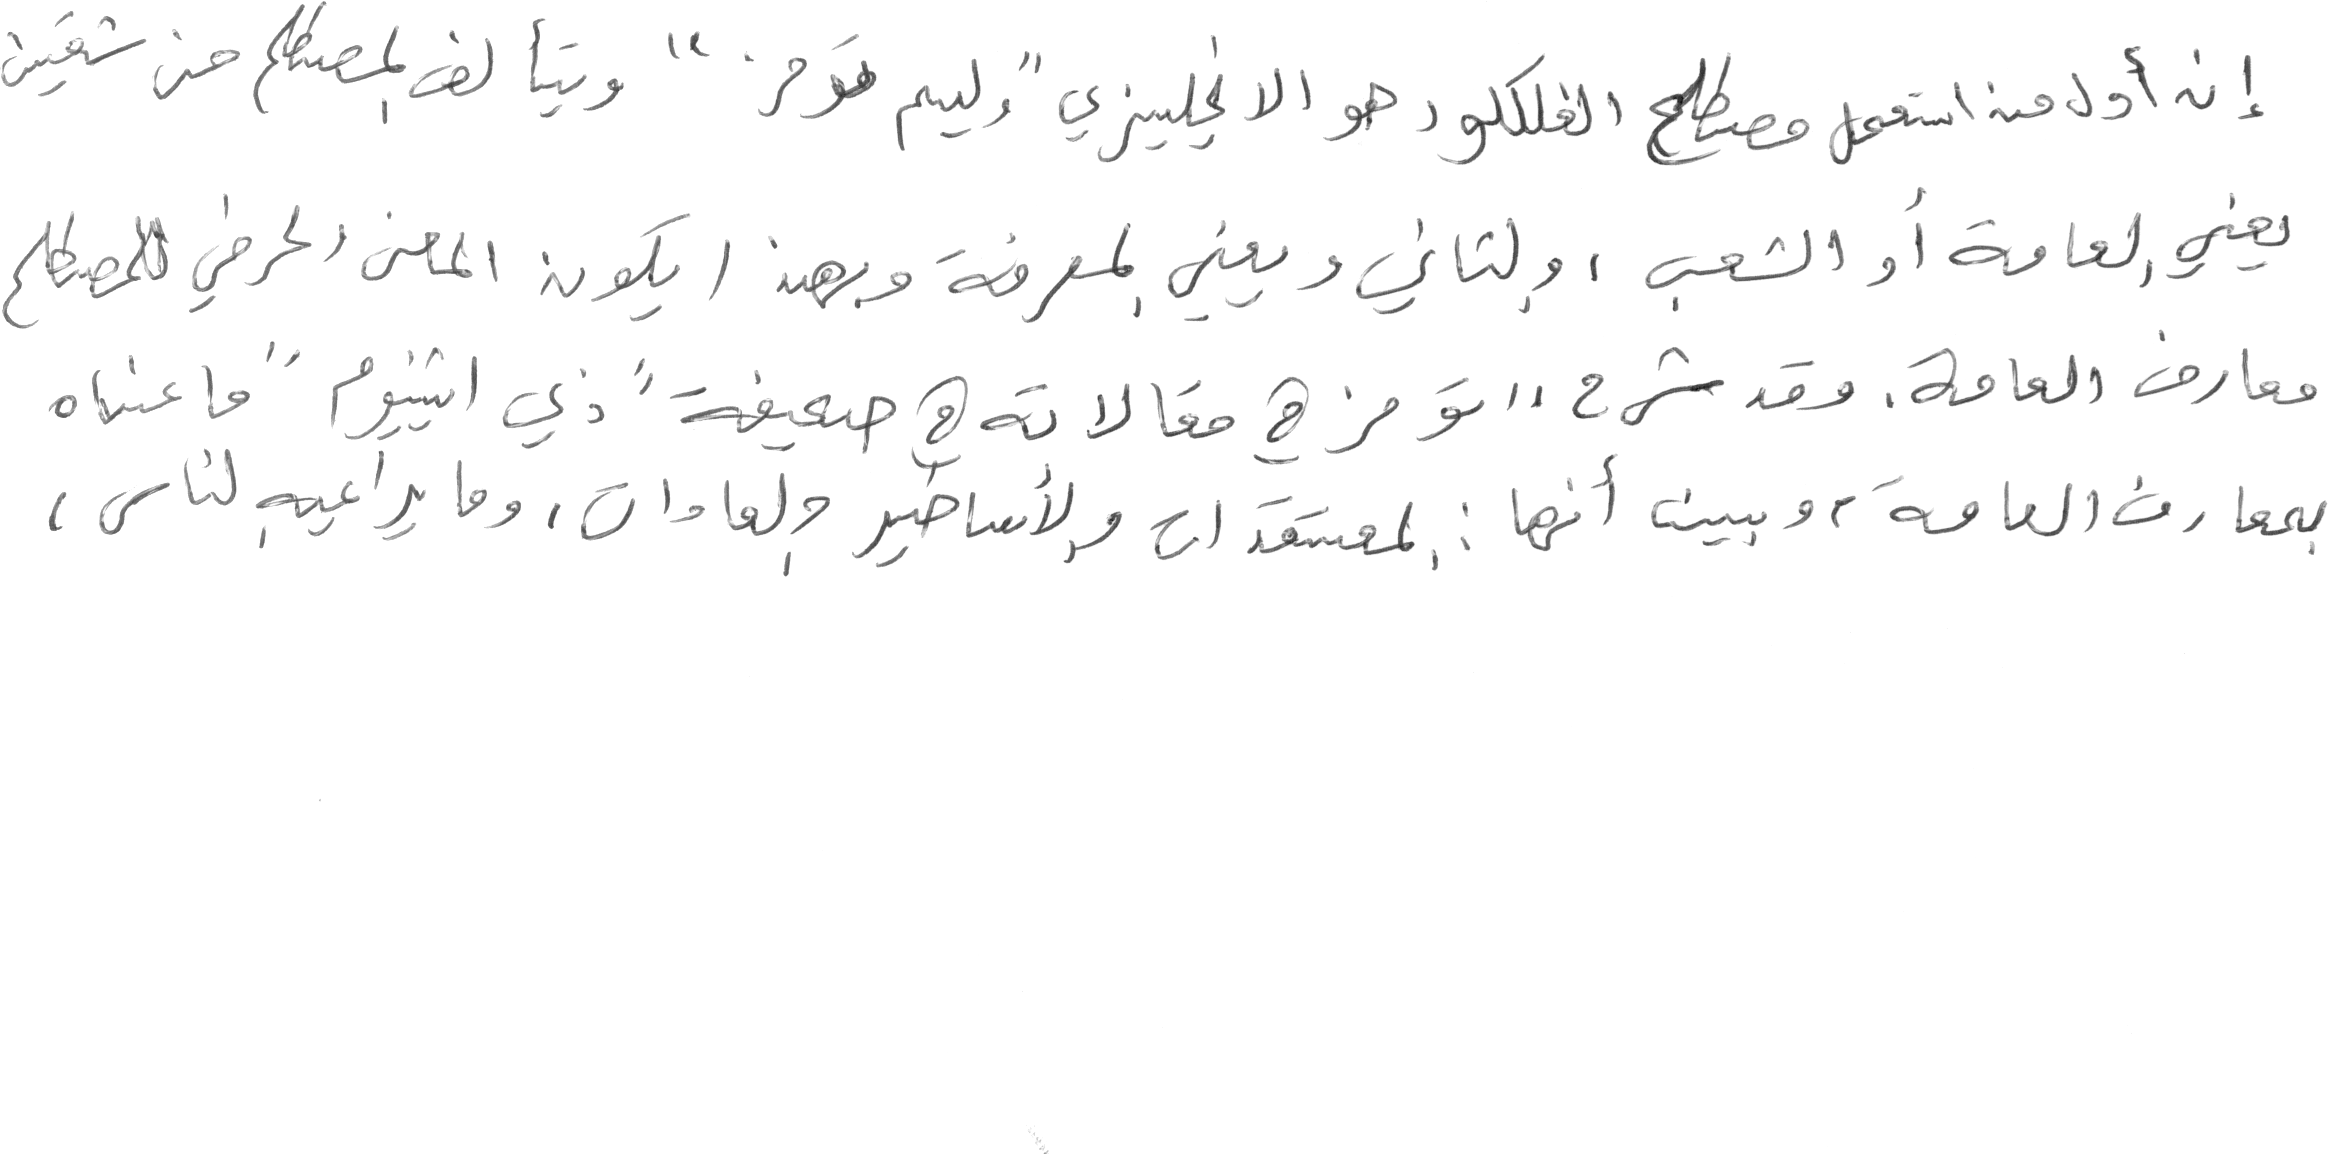 إن أول من استعمل مصطلح الفلكلور هو الانجليزي "وليم تومز" ويتألف المصطلح من شقين
يعني العامة أو الشعب، والثاني ويعني المعرفة وبهذا يكون المعنى الحرفي للمصطلح
معارف العامة. وقد شرح "تومز في مقالاته في صحيفة "ذي اثنيوم" ما عناه
بمعارف العامة، وبين أنها: المعتقدات والأساطير والعادات، وما يراعيه الناس،